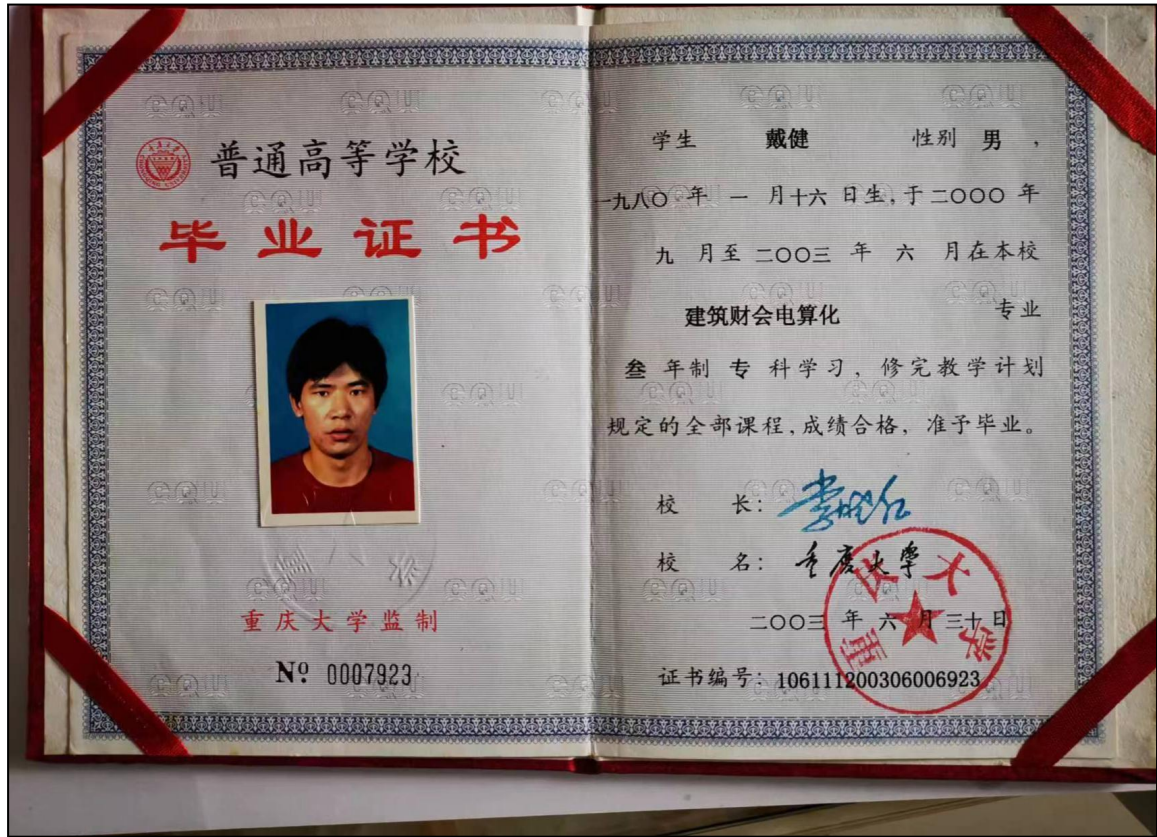 普通高等学校
毕业证书
重庆大学监制
Nº 0007923
学生 戴健 性别 男，
一九八〇年 一 月十六 日生,于二〇〇〇 年
九 月至 二〇〇三 年 六 月在本校
建筑财会电算化 专业
叁 年制 专 科学习，修完教学计划
规定的全部课程,成绩合格，准予毕业。
校 长：
校 名：重庆大学
二〇〇三 年 六 月 三十 日
重庆大学
证书编号：106111200306006923
CQU